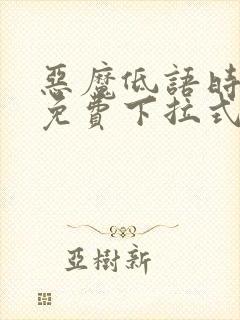 惡魔低語時
免費下拉式
亞樹新